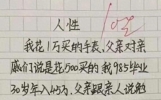 人性
10分
我花1万买的手表,父亲对亲
戚们说是花1500买的 我985毕业
30岁年入45万,父亲跟亲人说我